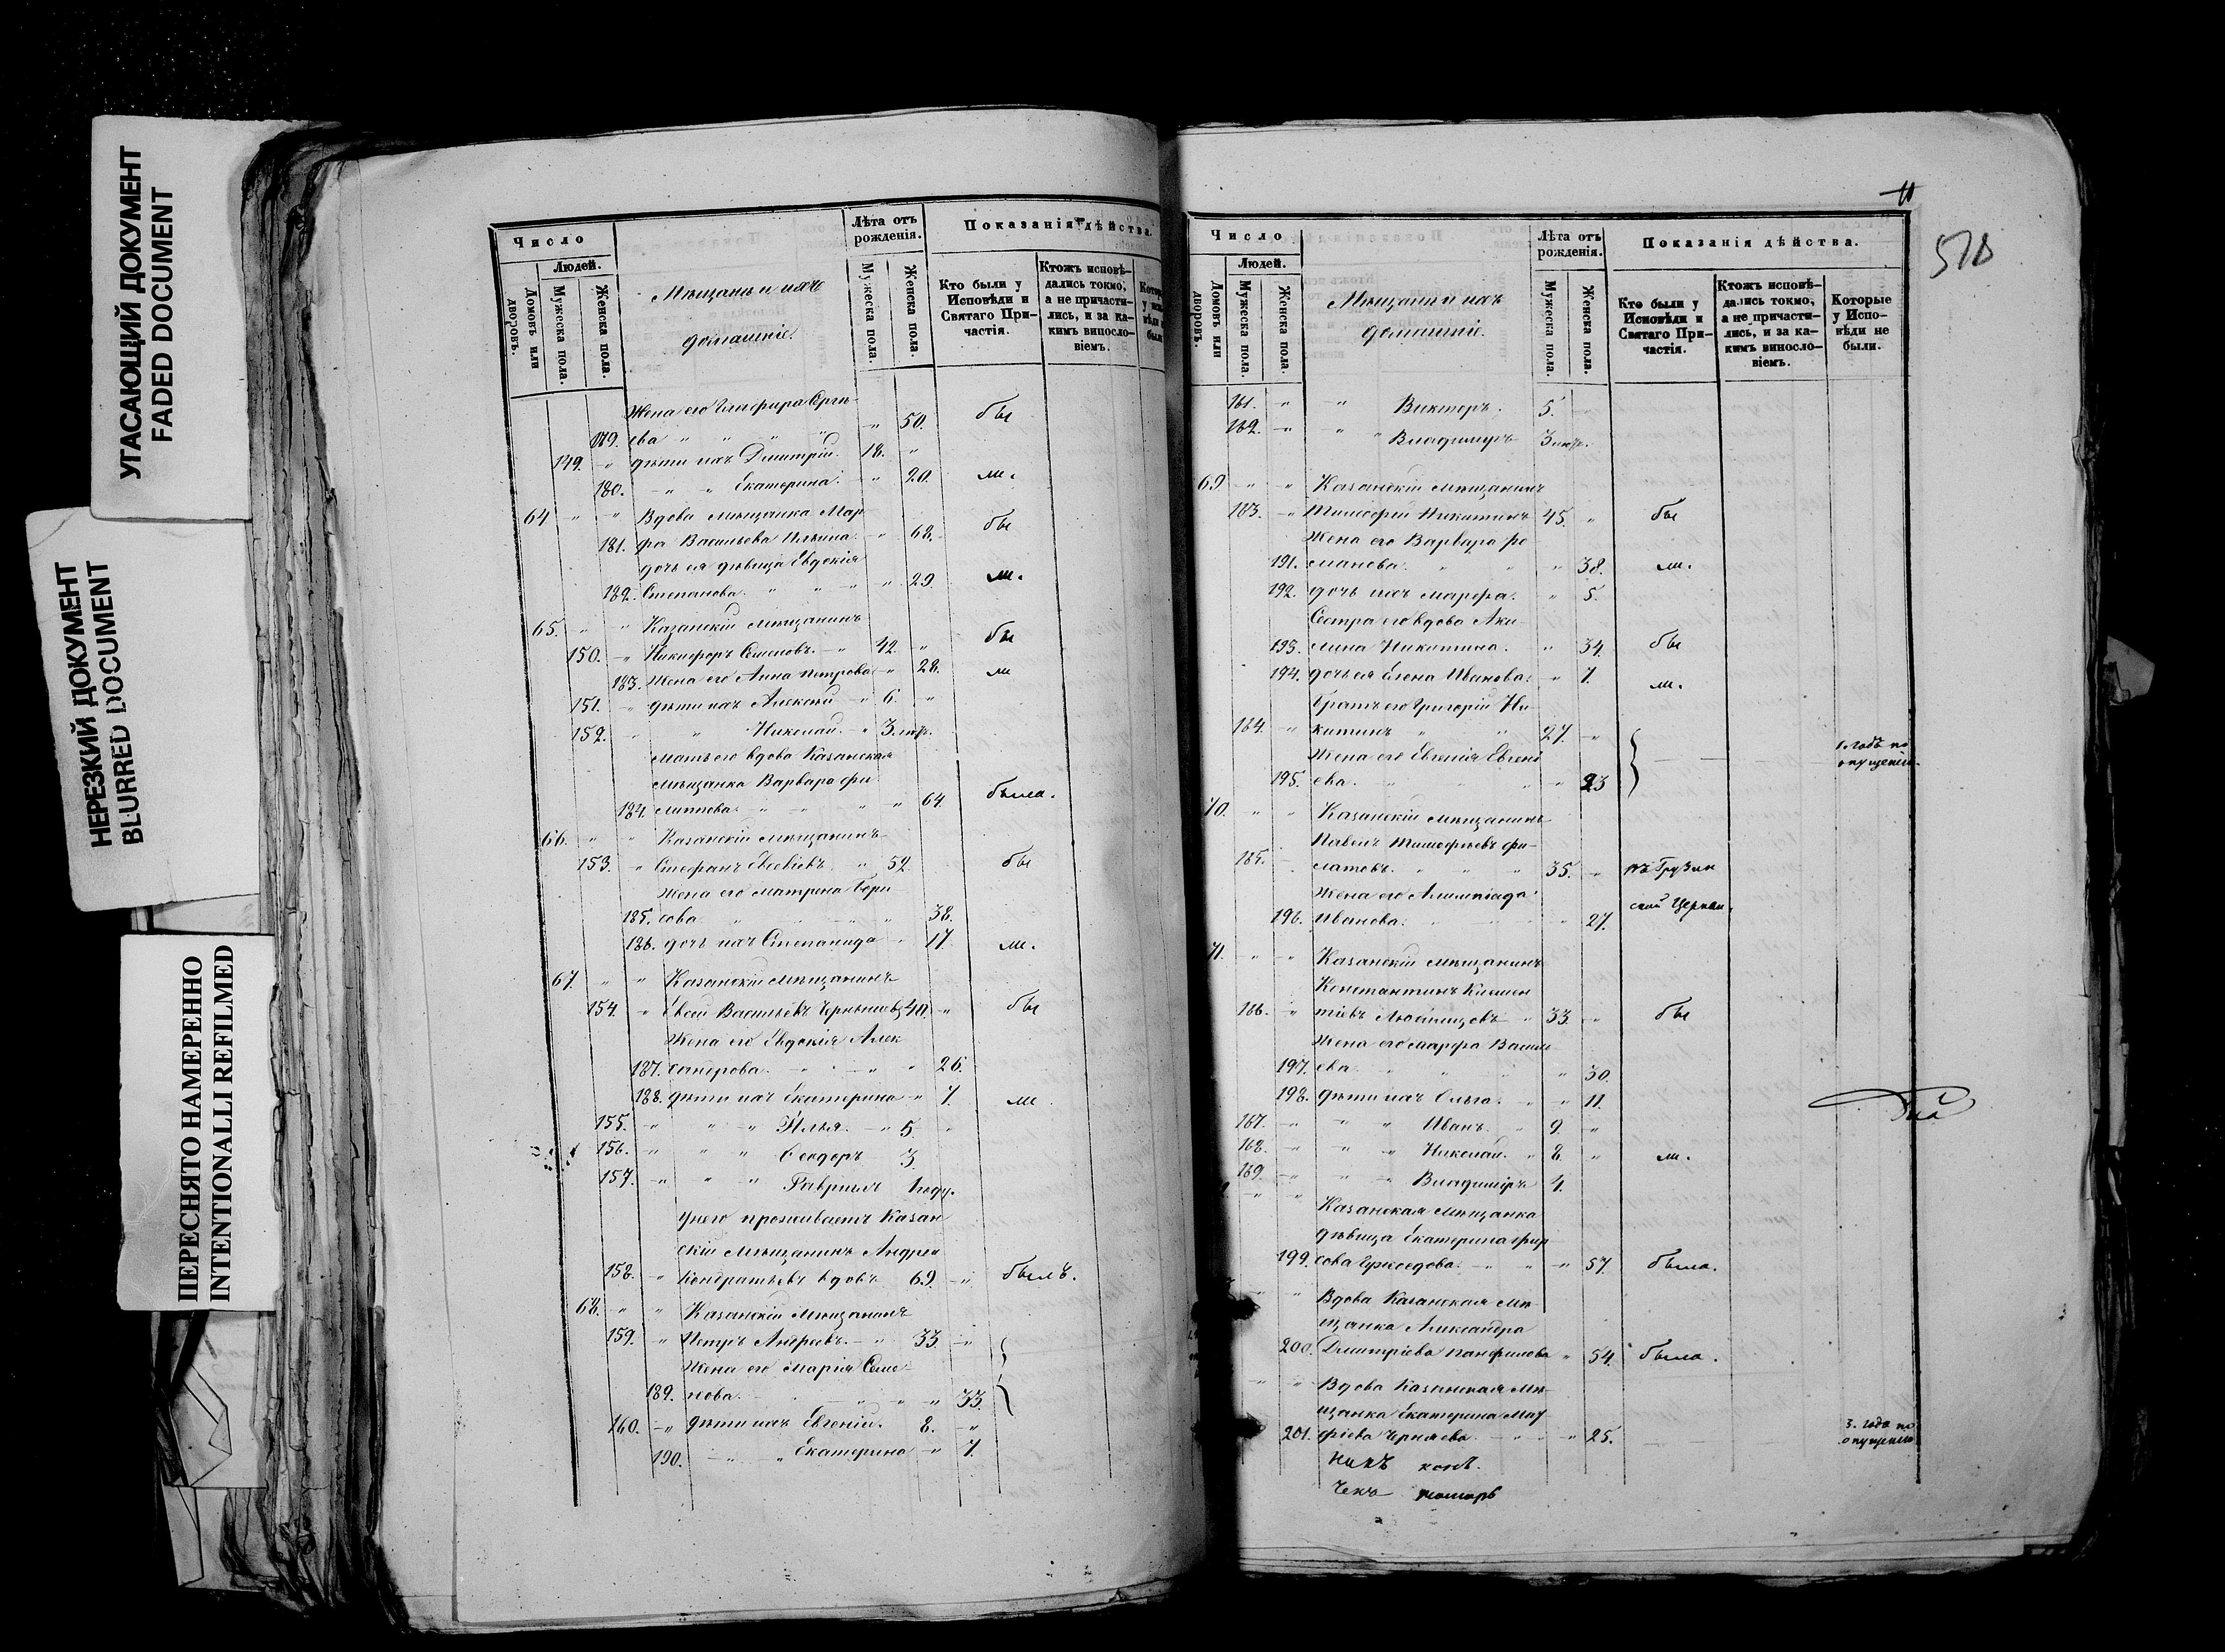 УГАСАЮЩИЙ ДОКУМЕНТ
FADED DOCUMENT
НЕРЕЗКИЙ ДОКУМЕНТ
BLURRED DOCUMENT
ПЕРЕСНЯТО НАМЕРЕННО
INTENTIONALLI REFILMED
Число
Людей.
Домовъ или дворовъ.
Мужеска пола.
Женска пола.
Мѣщане и ихъ
домашніе.
Лѣта отъ рожденія.
Мужеска пола.
Женска пола.
Показанія дѣйства.
Кто были у Исповѣди и Святаго Причастія.
Ктожъ исповѣдались токмо, а не причастились, и за какимъ виносло-
віемъ.
Жена его Глафира Серги-
179. ева " " " " " 50. бы
149. " дѣти ихъ Дмитрій. 18. "
180. " " Екатерина. " 20. ли.
64 " " Вдова мѣщанка Мар
181. фа Васильева Ильина. " 68. бы
дочь ея дѣвица Евдокія
182. Степанова. " " " 29. ли.
65. " " Казанскій мѣщанинъ
150. " Никифоръ Семеновъ. " 42. " бы
183. Жена его Анна Петрова " 28. ли
151. " дѣти ихъ Алексѣй " 6. "
152. " " Николай. " 3. мѣс.
Мать его вдова Казанская
мѣщанка Варвара Фи
184. липпова. " " " " 64. была.
66. " " Казанскій мѣщанинъ
153. " Стефанъ Евсевіевъ. " 52. бы
Жена его Матрена Бори
185. сова " " " 38.
186. дочь ихъ Степанида " 17. ли.
67. " " Казанскій мѣщанинъ
154. " Евсей Васильевъ Чернышевъ 40. " бы
Жена его Евдокія Алек
187. сандрова. " " " 26.
188. дѣти ихъ Екатерина " 7. ли
155. " " " Илья. " 5. "
156. " " " Ѳеодоръ 3.
157. " " " Гавріилъ 1 году.
У него проживаетъ Казан
скій мѣщанинъ Андрей
158. " Кондратьевъ вдовъ. 69. " былъ.
68. " " Казанскій мѣщанинъ
159. " Петръ Андреевъ. " 33. "
Жена его Марія Семе-
189. нова. " " " 33.
160. " дѣти ихъ Евгеній. 8. "
190. " " Екатерина " 7.
Число
Людей.
Домовъ или дворовъ.
Мужеска пола.
Женска пола.
Мѣщане и ихъ
домашніе.
Лѣта отъ рожденія.
Мужеска пола.
Женска пола.
Показанія дѣйства.
Кто были у Исповѣди и Святаго Причастія.
Ктожъ исповѣдались токмо, а не причастились, и за какимъ виносло-
віемъ.
Которые у Исповѣди не были.
161. " " Викторъ. 5. "
162. " " " Владиміръ 3 мѣс.
69. " " Казанскій мѣщанинъ
163. " Тимофей Никитинъ 45. " бы
Жена его Варвара Ро
191. манова. " " " 38. ли.
192. дочь ихъ Марфа. " 5.
Сестра его вдова Аки-
193. лина Никитина. " 34. бы
194. дочь ея Елена Иванова. " 7. ли.
Братъ его Григорій Ни-
164. " китинъ " " 27. " 1. годъ по
Жена его Евгенія Евгені опущенію.
195. ева. " " " 23
70. " " Казанскій мѣщанинъ
Павелъ Тимофѣевъ Фи-
165. " латовъ. " " " 35. " въ Грузин
Жена его Алимпіада
196. Иванова. " " " 27. ской Церкви.
71. " " Казанскій мѣщанинъ
Константинъ Климен
166. " тіевъ 33. " бы
Жена его Марфа Василь
197. ева. " " " " 30.
198. дѣти ихъ Ольга. " " 11.
167. " " " Иванъ. " 9. "
168. " " " Николай. " 8. " ли.
169. " " " Владиміръ 4.
" " Казанская мѣщанка
дѣвица Екатерина Фир
199. сова " " " 57. была.
" " Вдова Казанская мѣ-
щанка Александра
200. Дмитріева Панфилова " 54. была.
" " Вдова Казанская мѣ-
щанка Екатерина Мат
201. фіева Черняева. " " " 25. 3. года по
опущенію